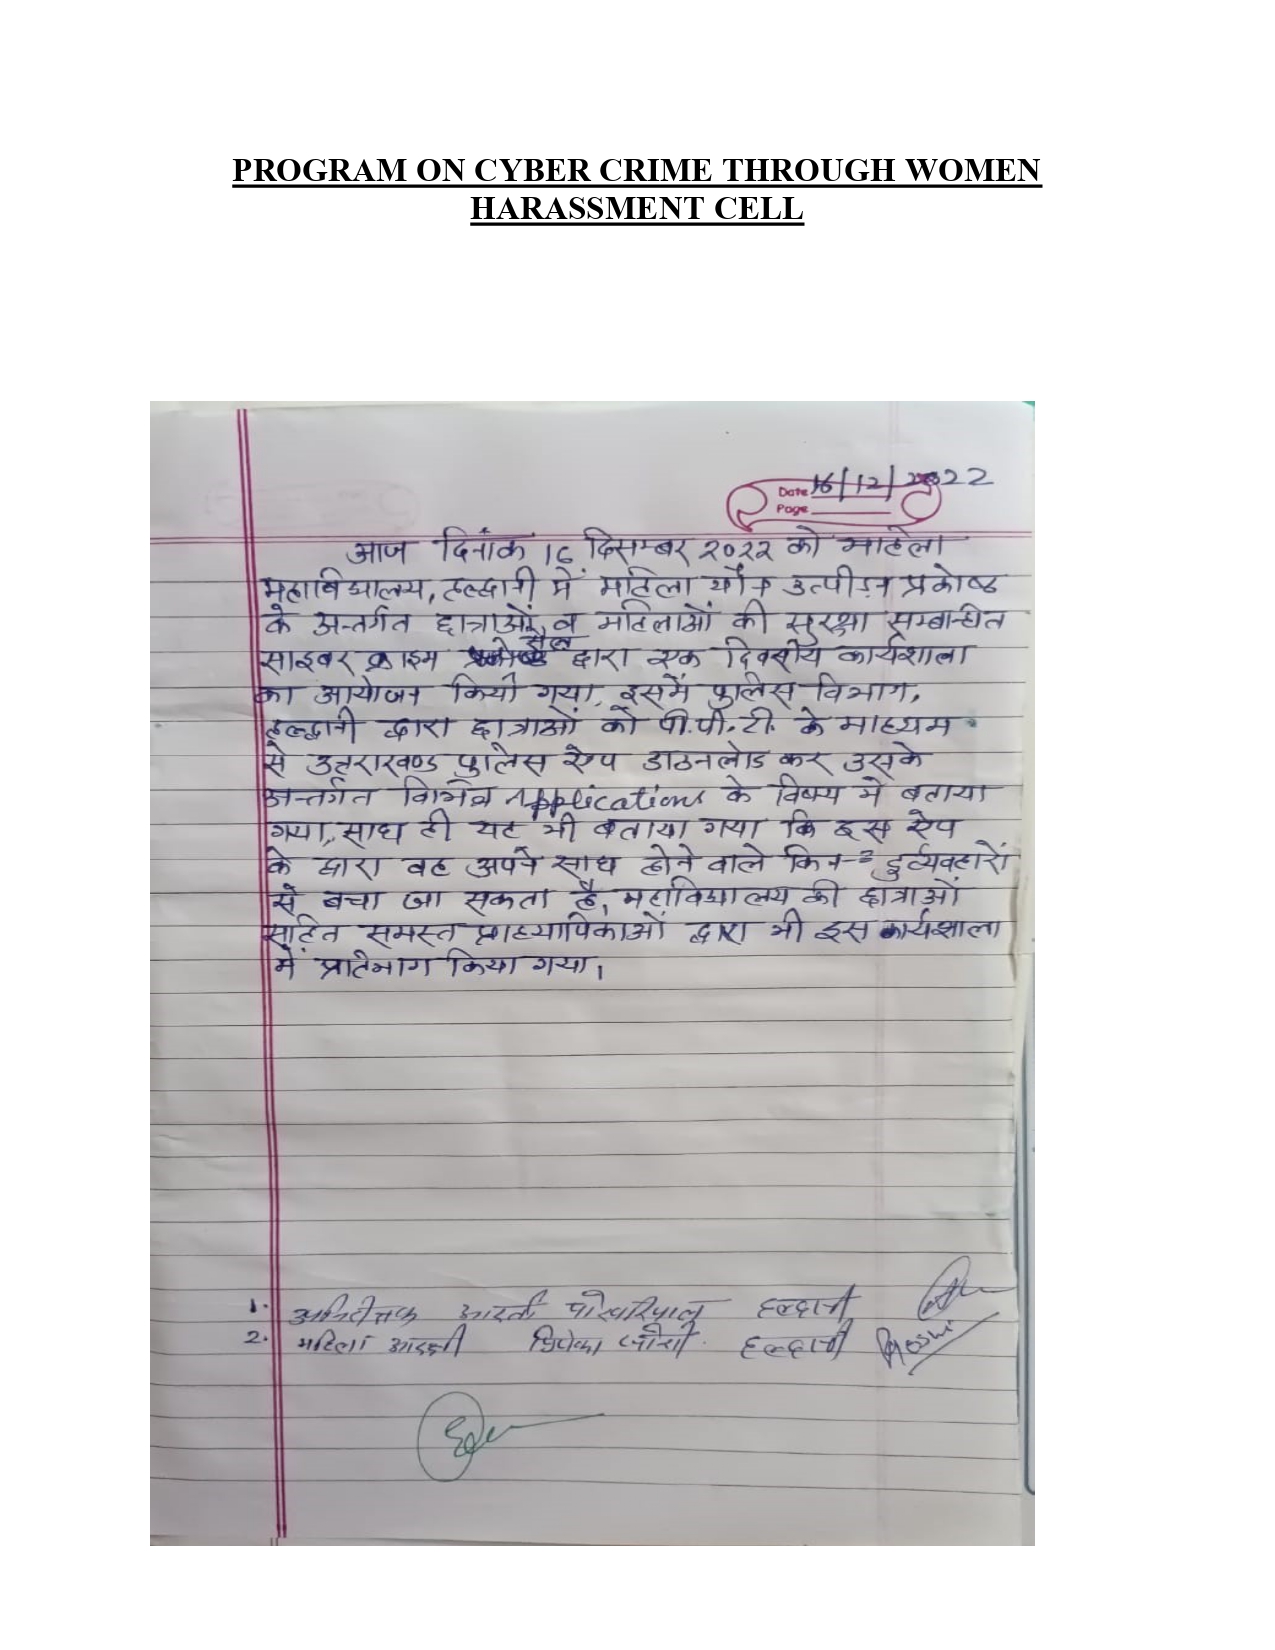 PROGRAM ON CYBER CRIME THROUGH WOMEN
HARASSMENT CELL
Date 16/12/2022
Page
आज दिनांक 16 दिसम्बर २०२२ को महिला
महाविद्यालय, हल्द्वानी में महिला यौन उत्पीडन प्रकोष्ठ
के अन्तर्गत छात्राओं व महिलाओं की सुरक्षा सम्बान्धित
साइबर क्राइम सैल द्वारा एक दिवसीय कार्यशाला
का आयोजन किया गया, इसमें पुलिस विभाग,
हल्द्वानी द्वारा छात्राओं को पी.पी.टी. के माध्यम
से उत्तराखण्ड पुलिस ऐप डाउनलोड कर उसके
अन्तर्गत विभिन्न Applications के विषय में बताया
गया, साथ ही यह भी बताया गया कि इस ऐप
के द्वारा वह अपने साथ होने वाले किन-२ दुर्व्यवहारों
से बचा जा सकता है, महाविद्यालय की छात्राओं
सहित समस्त प्राध्यापिकाओं द्वारा भी इस कार्यशाला
में प्रतिभाग किया गया।
1. आरती पोखरियाल हल्द्वानी
2. महिला आरक्षी जोशी हल्द्वानी Joshi